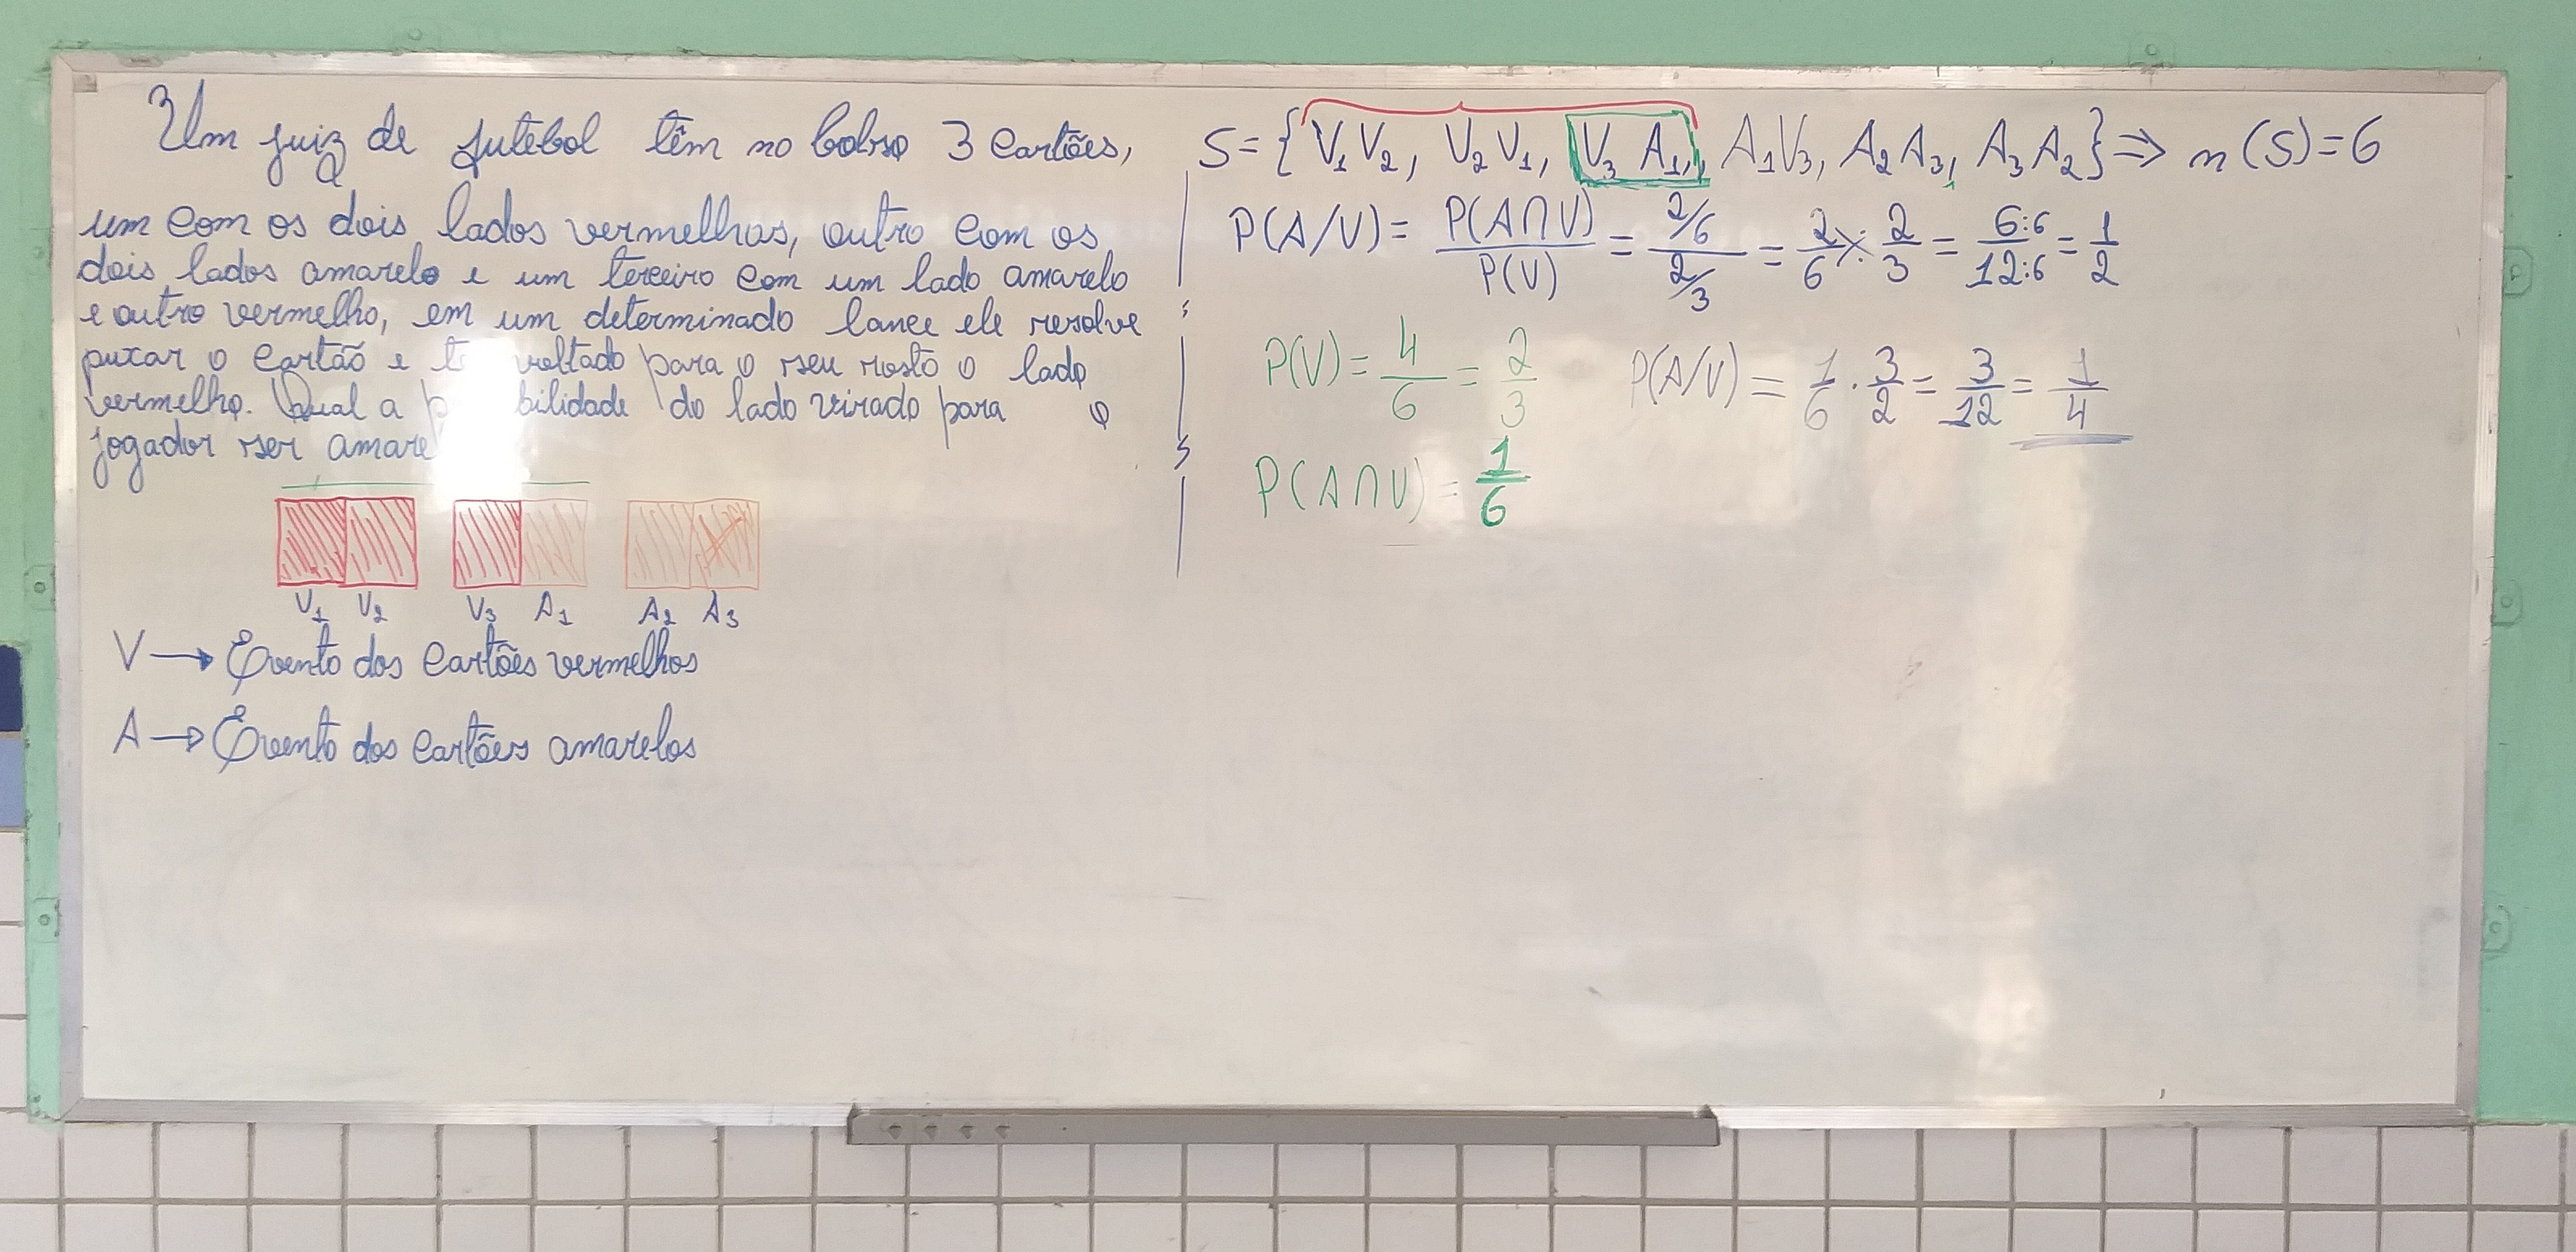 Um juiz de futebol têm no bolso 3 cartões,
um com os dois lados vermelhos, outro com os
dois lados amarelo e um terceiro com um lado amarelo
e outro vermelho, em um determinado lance ele resolve
puxar o cartão e voltado para o seu rosto o lado
vermelho. Qual a do lado virado para o
jogador ser
V₁ V₂ V₃ A₁ A₂ A₃
V → Evento dos cartões vermelhos
A → Evento dos cartões amarelos
S = {V₁V₂, V₂V₁, V₃ A₁, A₁V₃, A₂A₃, A₃A₂} ⇒ n(S) = 6
P(A/V) = P(A∩V)/P(V) = (2/6)/(2/3) = 2/6 × 2/3 = 6:6/12:6 = 1/2
P(V) = 4/6 = 2/3
P(A/V) = 1/6 · 3/2 = 3/12 = 1/4
P(A∩V) = 1/6